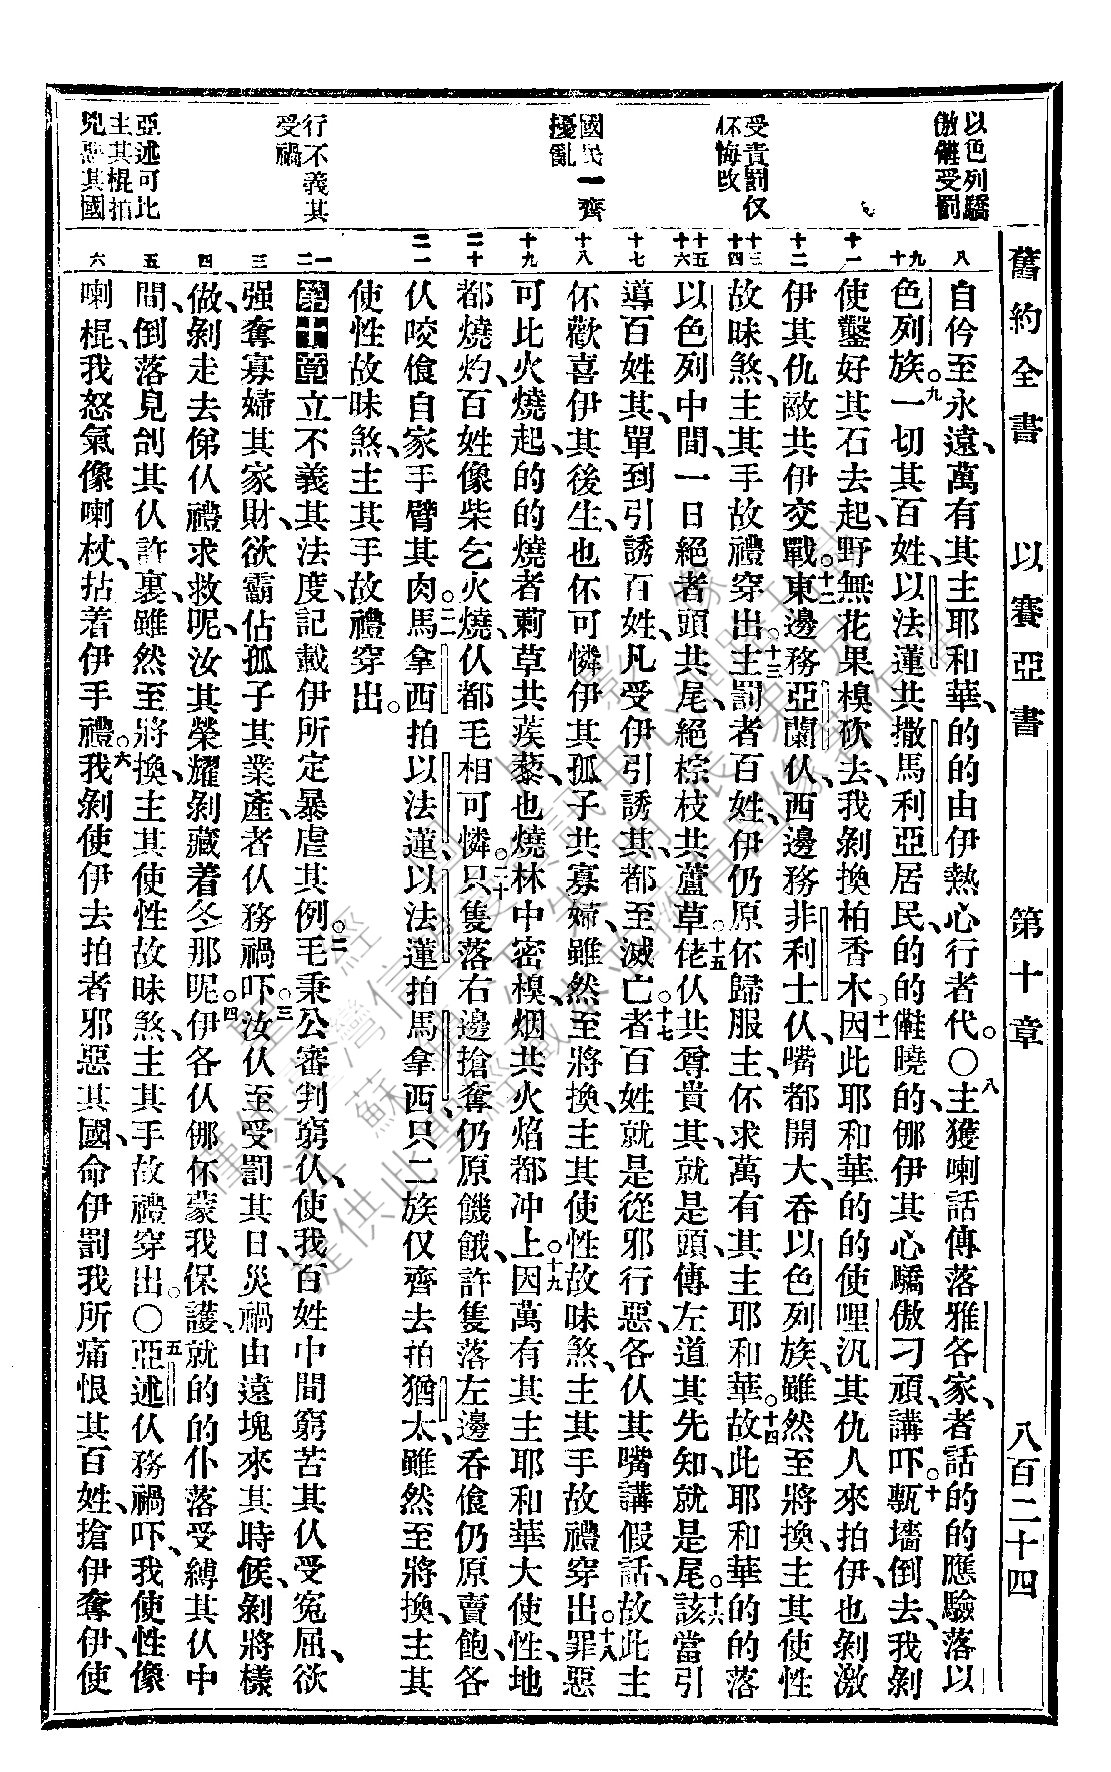 舊約全書 以賽亞書 第十章 八百二十四
以色列驕
傲僻受罰
受責罰仅
怀悔改
國民一齊
擾亂
行不義其
受禍
亞述可比
主其棍拍
兇惡其國
八 九 十 十一 十二 十三 十四 十五 十六 十七 十八 十九 二十 二一 一 二 三 四 五 六
自仱至永遠、萬有其主耶和華、的的由伊熱心行者代。〇八主獲喇話傳落雅各家、者話的的應驗落以
色列族。九一切其百姓、以法蓮共撒馬利亞居民、的的僆曉的、㑚伊其心驕傲刁頑、講吓。十甎墻倒去、我剝
使鑿好其石去起、野無花果模砍去、我剝換柏香木。十一因此耶和華的的使哩汎其仇人來拍伊、也剝激
伊其仇敵共伊交戰。十二東邊務亞蘭仈、西邊務非利士仈、嘴都開大、吞以色列族、雖然至將換、主其使性
故昧煞、主其手故禮穿出。十三主罰者百姓、伊仍原怀歸服主、怀求萬有其主耶和華。十四故此耶和華的的落
以色列中間、一日絕者頭共尾、絕棕枝共蘆草。十五佬仈共尊貴其、就是頭、傳左道其先知、就是尾。十六該當引
導百姓其、單到引誘百姓、凡受伊引誘其、都至滅亡。十七者百姓就是從邪行惡、各仈其嘴講假話、故此主
怀歡喜伊其後生、也怀可憐伊其孤子共寡婦、雖然至將換、主其使性故昧煞、主其手故禮穿出。十八罪惡
可比火燒起、的的燒者莿草共蒺藜、也燒林中密模、烟共火焰都冲上。十九因萬有其主耶和華大使性、地
都燒灼、百姓像柴乞火燒、仈都毛相可憐。二十只隻落右邊搶奪、仍原饑餓、許隻落左邊吞飡、仍原賣飽、各
仈咬飡自家手臂其肉。二一馬拿西拍以法蓮、以法蓮拍馬拿西、只二族仅齊去拍猶太、雖然至將換、主其
使性故昧煞、主其手故禮穿出。
第十章一立不義其法度、記載伊所定暴虐其例。二毛秉公審判窮仈、使我百姓中間窮苦其仈受寃屈、欲
强奪寡婦其家財、欲霸佔孤子其業產、者仈務禍吓。三汝仈至受罰其日、災禍由遠塊來其時候、剝將樣
做、剝走去俤仈禮求救呢、汝其榮耀剝藏着冬那呢。四伊各仈㑚怀蒙我保護、就的的仆落受縛其仈中
間、倒落見刣其仈許裏、雖然至將換、主其使性故昧煞、主其手故禮穿出。〇五亞述仈務禍吓、我使性像
喇棍、我怒氣像喇杖、拈着伊手禮。六我剝使伊去拍者邪惡其國、命伊罰我所痛恨其百姓、搶伊奪伊、使